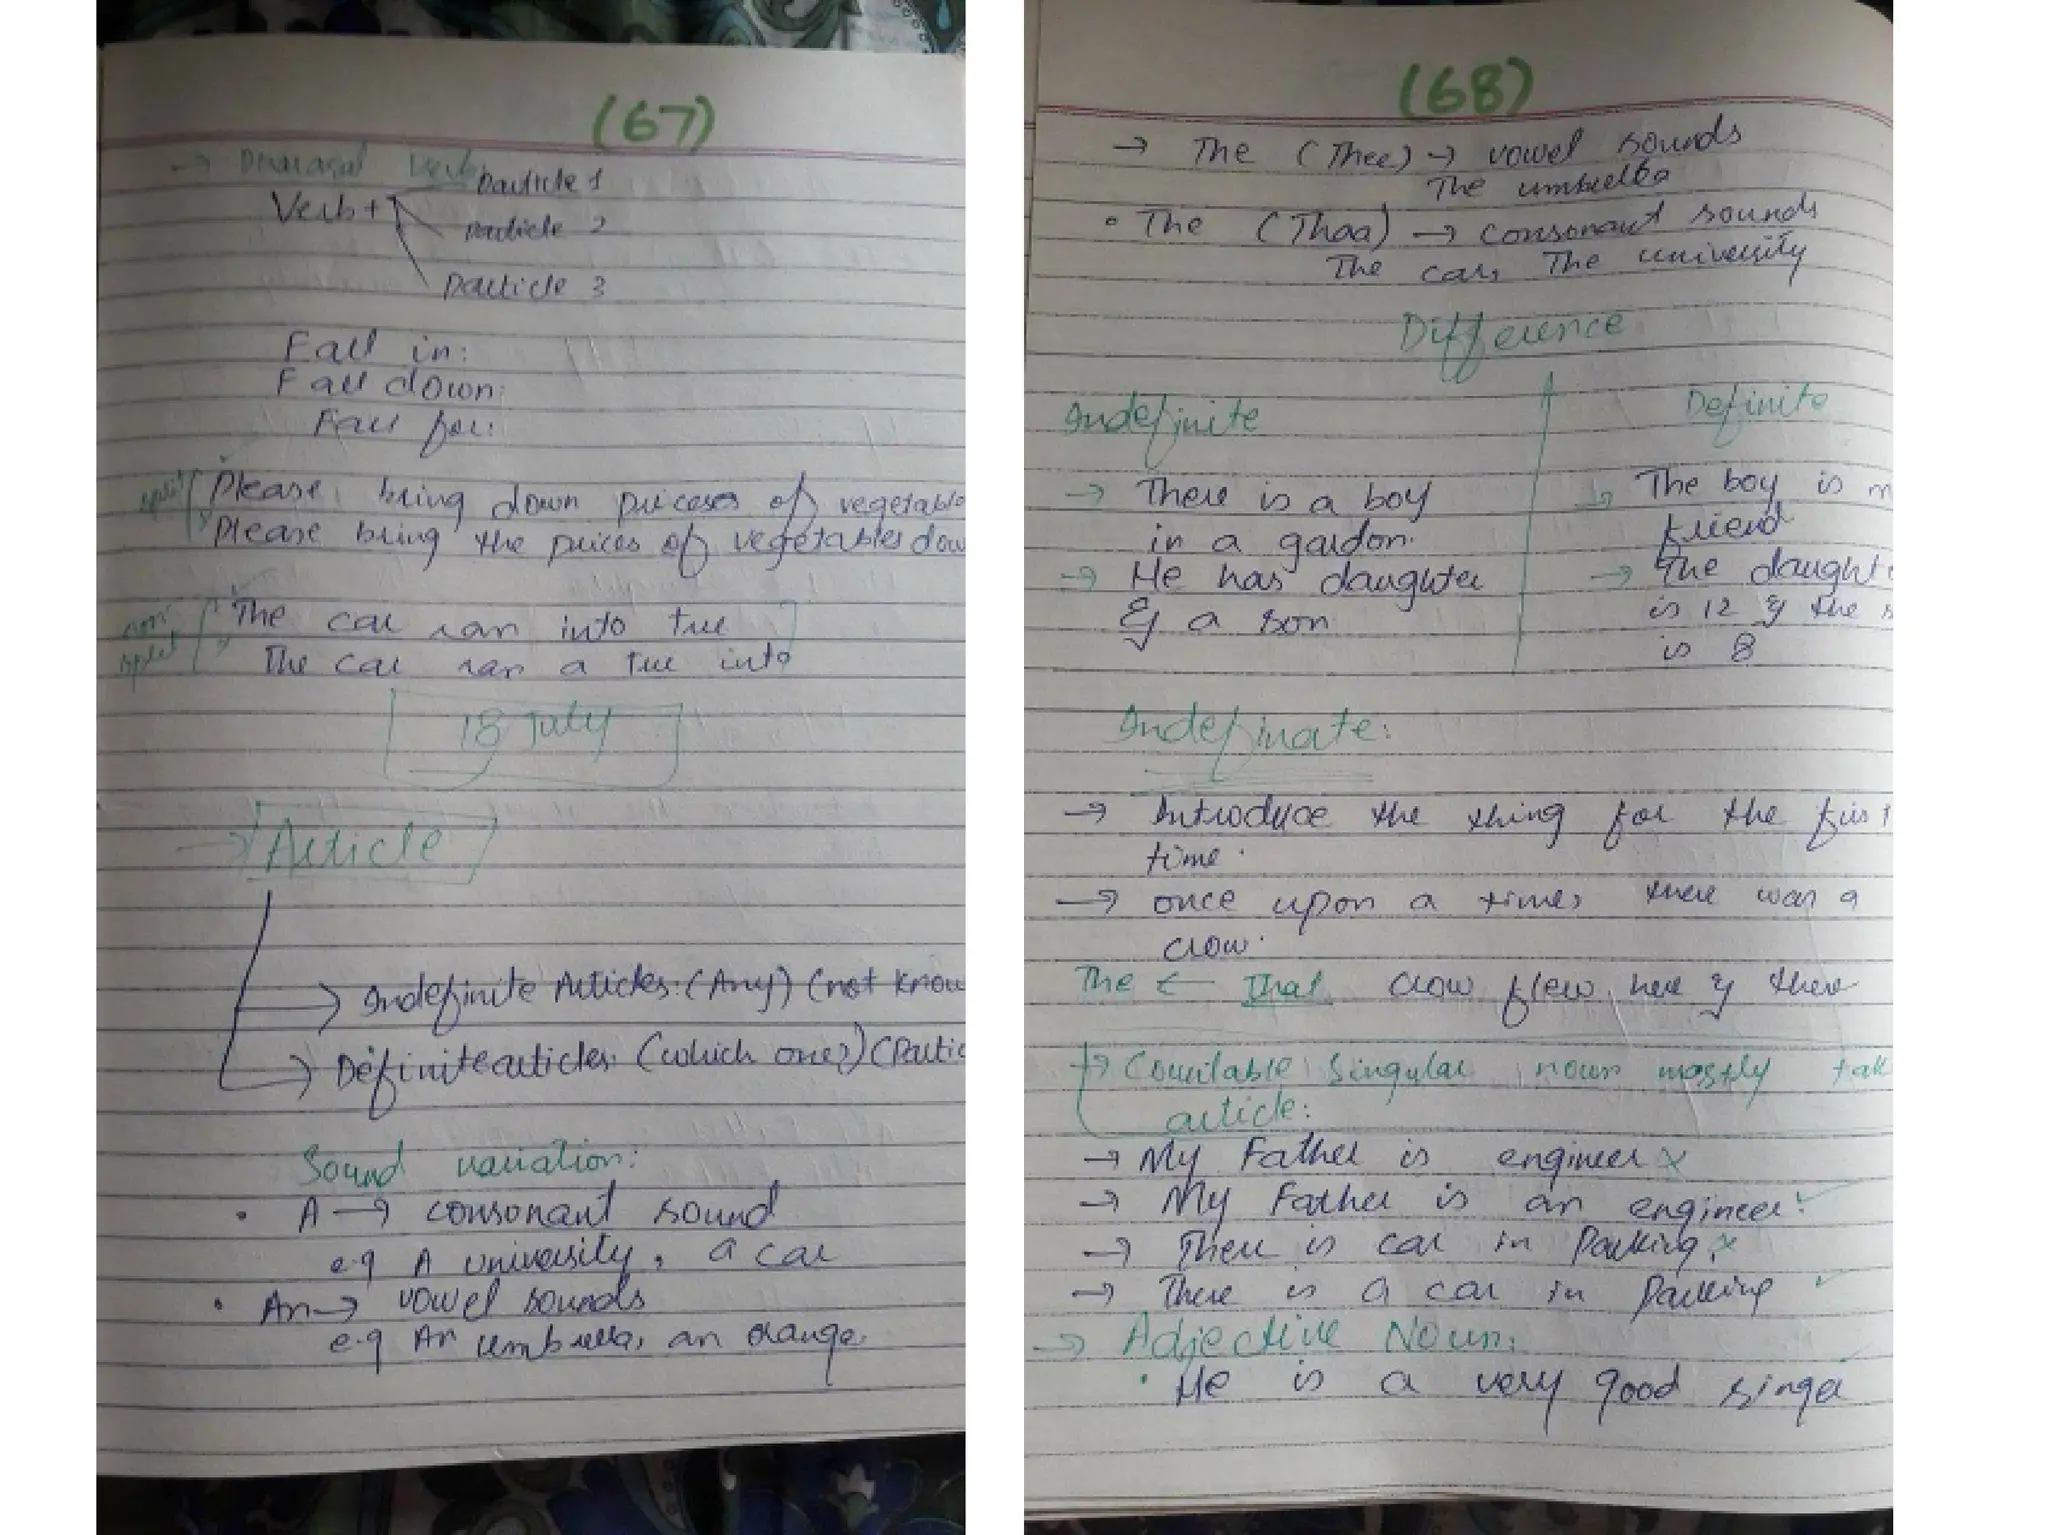 (67)
→ Phrasal Verb
Particle 1
Verb +
Particle 2
Particle 3
Fall in:
Fall down:
Fall for:
split Please bring down priceses of vegetable
Please bring the prices of vegetables dow
non split The car ran into tree
The car ran a tree into
18 July
→ Article
→ Indefinite Articles: (Any) (not know
→ Definite articles: (which one?) (Partic
Sound variation:
• A → consonant sound
e.g A university, a car
• An → vowel sounds
e.g An umbrella, an orange
(68)
→ The (Thee) → vowel sounds
The umbrella
• The (Thaa) → consonant sounds
The car, The university
Difference
Indefinite
→ There is a boy
in a gardon.
→ He has daughter
& a son
Definite
→ The boy is m
friend
→ The daught
is 12 & the s
is 8
Indefinate:
→ Introduce the thing for the first
time.
→ once upon a time, there was a
crow.
The ← That crow flew here & there
→ Countable Singular noun mostly tak
article:
→ My Father is engineer x
→ My Father is an engineer. ✓
→ There is car in Parking. x
→ There is a car in Parking ✓
→ Adjective Noun:
• He is a very good singer